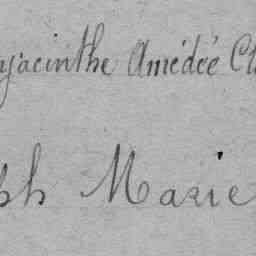 yacinthe Amédée Cl
ph Marie